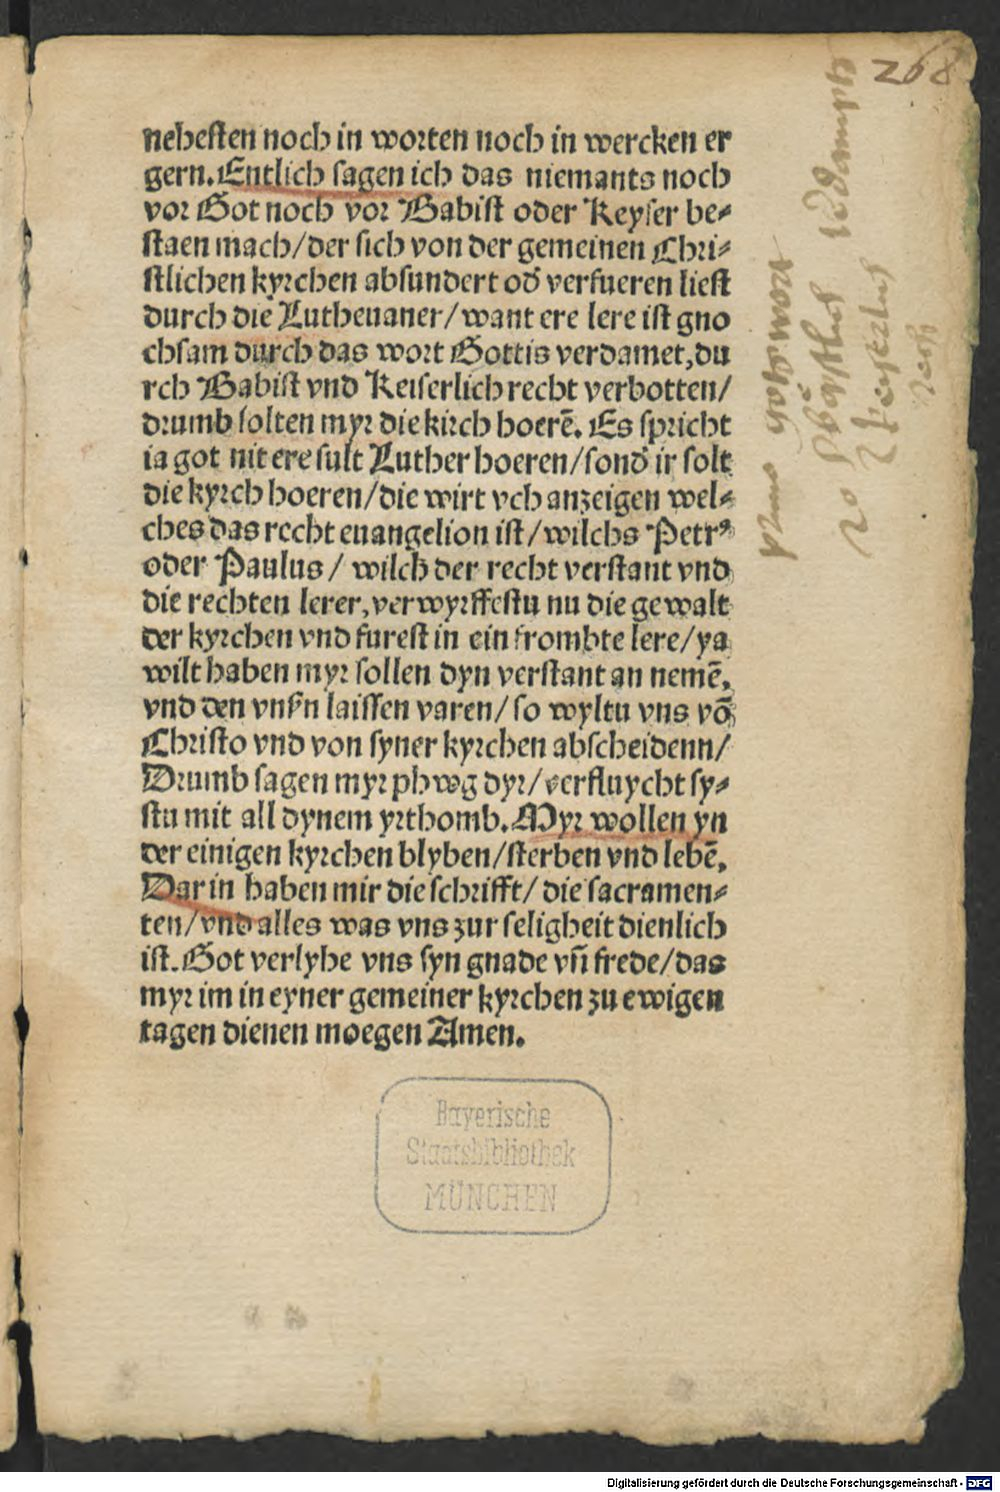 268
nehesten noch in worten noch in wercken er
gern. Entlich sagen ich das niemants noch
vor Got noch vor Babist oder Keyser be⸗
staen mach/der sich von der gemeinen Chri⸗
stlichen kyrchen absundert od̕ verfueren liest
durch die Lutheuaner/want ere lere ist gno
chsam durch das wort Gottis verdamet,du
rch Babist vnd Keiserlich recht verbotten/
drumb solten myr die kirch hoerē. Es spricht
ia got nit ere sult Luther hoeren/sond̕ ir solt
die kyrch hoeren/die wirt vch anzeigen wel⸗
ches das recht euangelion ist/wilchs Petrꝰ
oder Paulus/ wilch der recht verstant vnd
die rechten lerer,verwyrffestu nu die gewalt
der kyrchen vnd furest in ein frombte lere/ya
wilt haben myr sollen dyn verstant an nemē,
vnd den vnsn laissen varen/ so wyltu vns vō
Christo vnd von syner kyrchen abscheidenn/
Drumb sagen myr phwg dyr/verfluycht sy⸗
stu mit all dynem yrthomb. Myr wollen yn
der einigen kyrchen blyben/sterben vnd lebē,
Dar in haben mir die schrifft/ die sacramen⸗
ten/vnd alles was vns zur seligheit dienlich
ist. Got verlyhe vns syn gnade vn̄ frede/das
myr im in eyner gemeiner kyrchen zu ewigen
tagen dienen moegen Amen.
Bayerische
Staatsbibliothek
MÜNCHEN
Digitalisierung gefördert durch die Deutsche Forschungsgemeinschaft - DFG